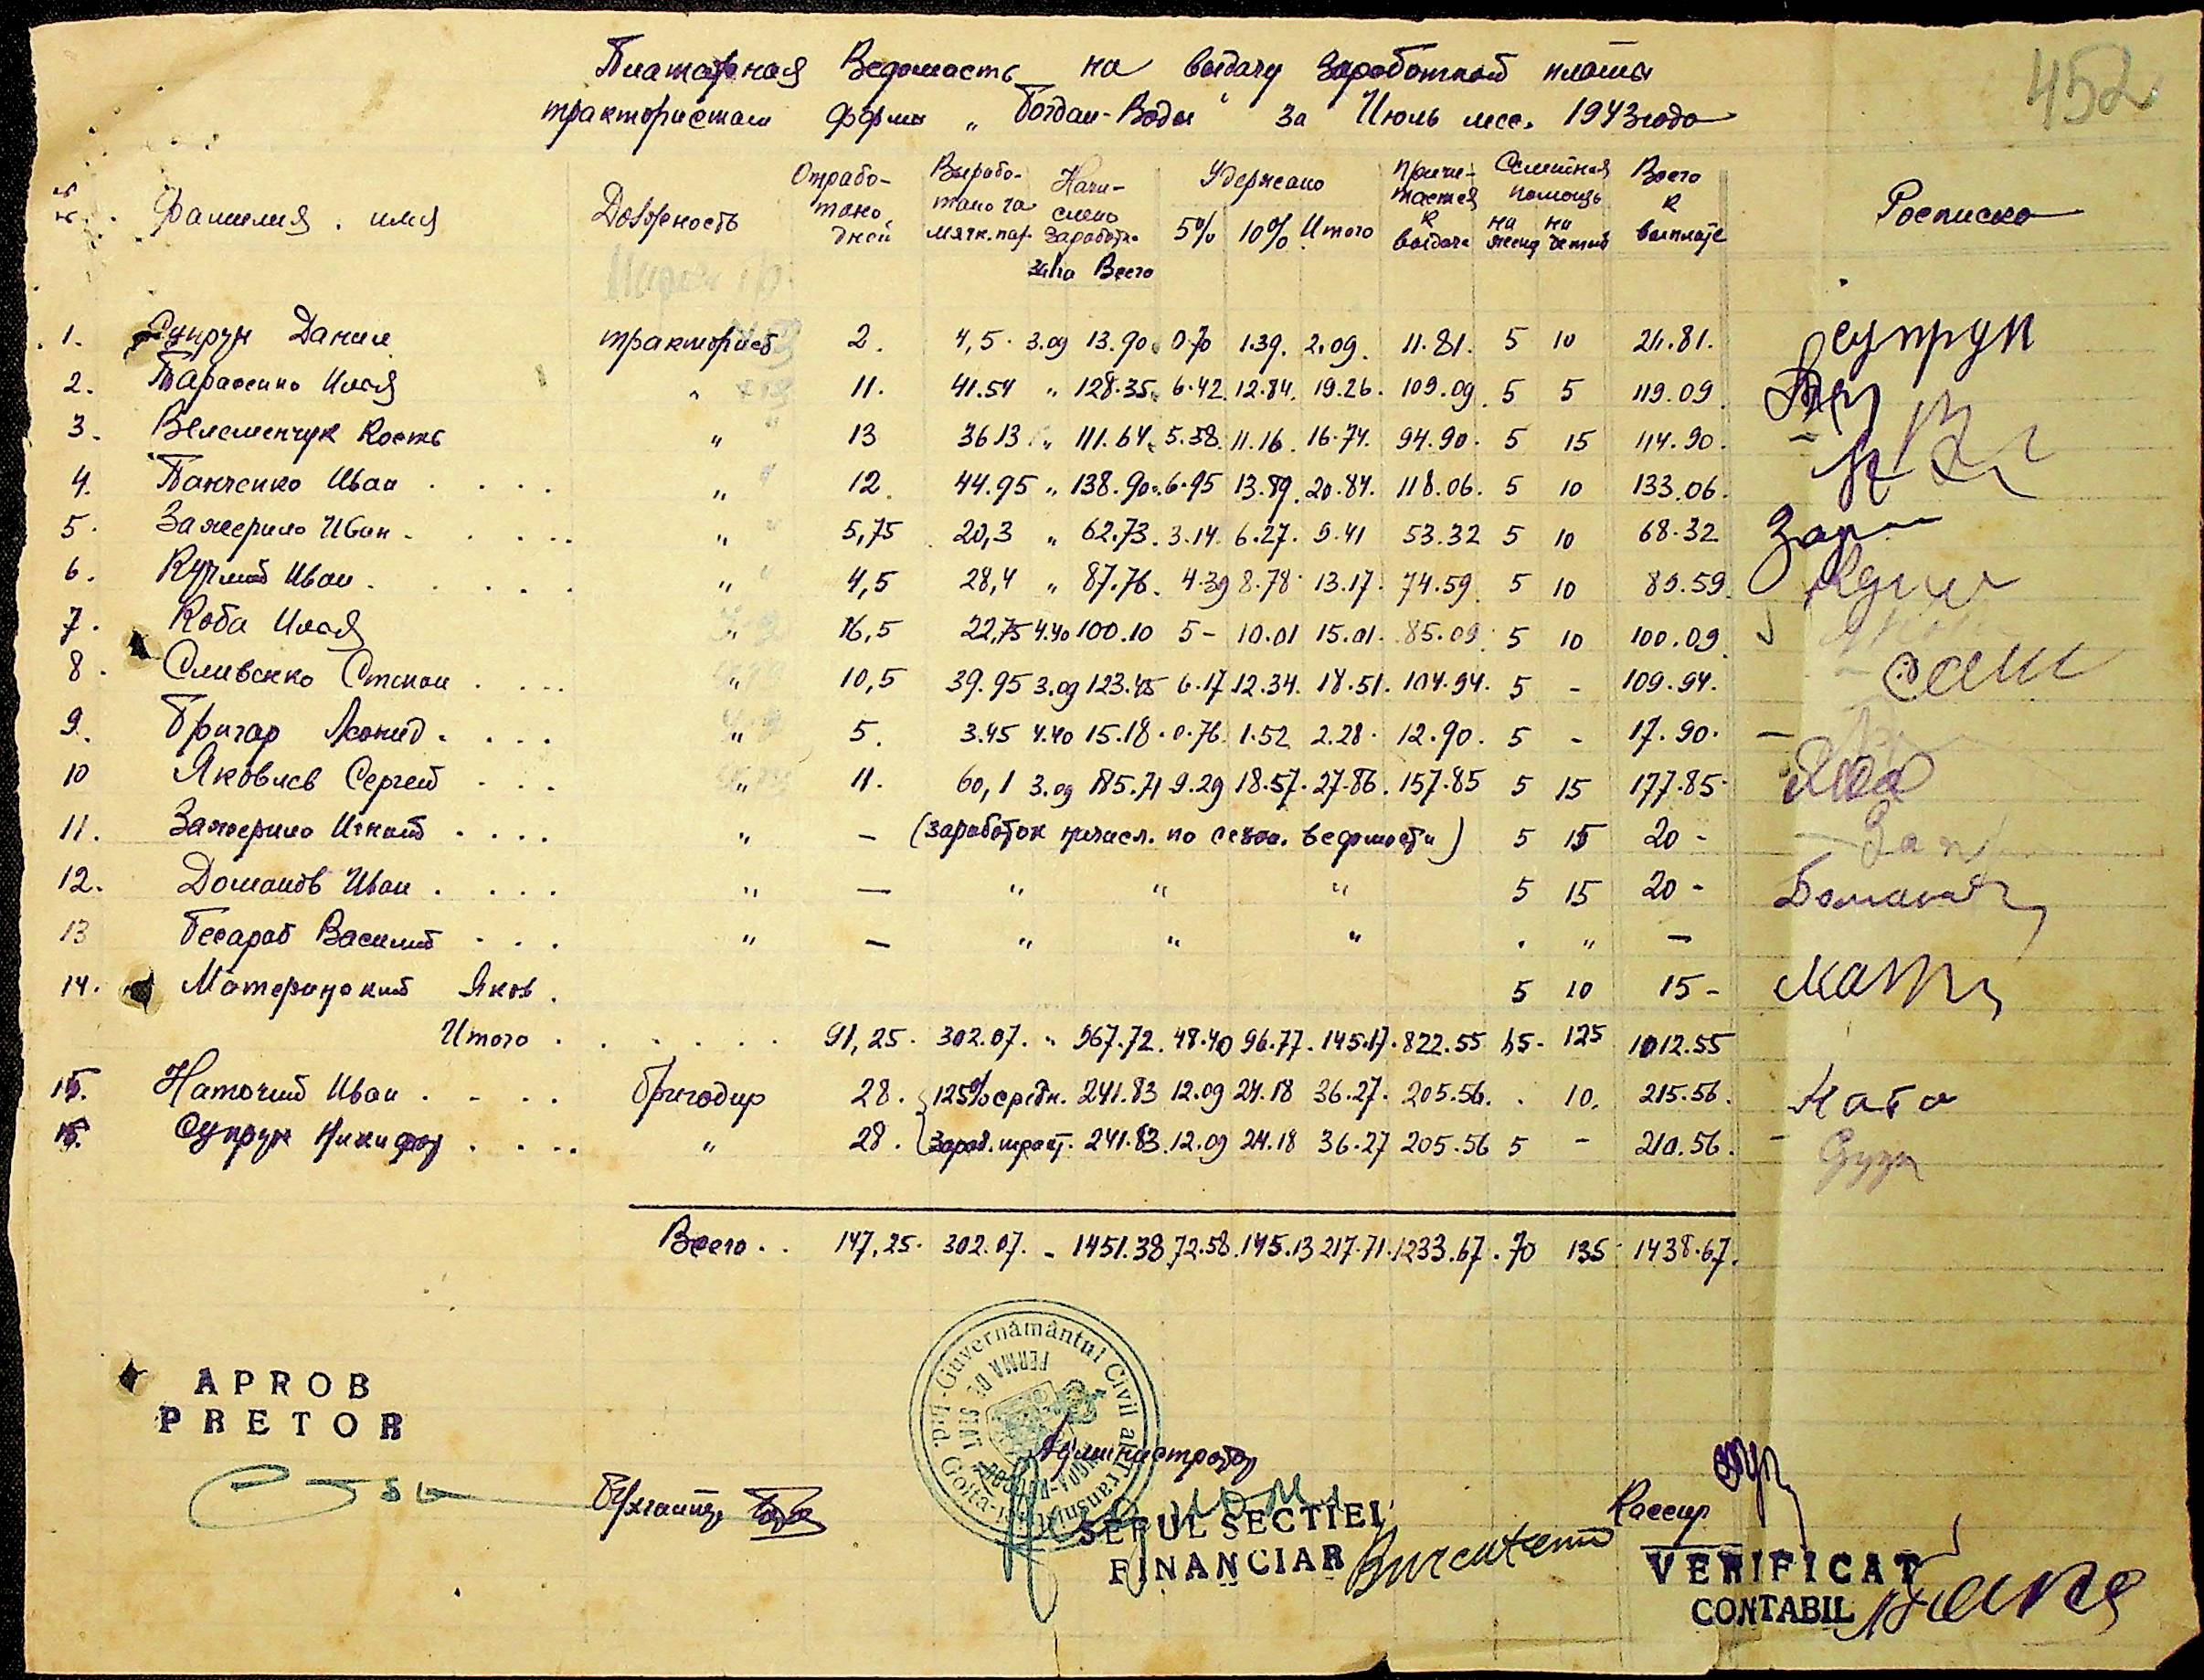 452
Платежная Ведомость на выдачу Заработной платы
трактористам фермы „Богдан-Воды" за Июль мес. 1943 года
Фамилия. имя Должность Отрабо-тано дней Вырабо-тано га мягк. пах. Начи-слено заработка за 1 га Всего Удержано 5% 10% Итого Причи-тается к выдаче Семейная помощь на жену на детей Всего к выплате Расписка
1. Супрун Данил тракторист 2. 4,5 3.09 13.90 0.70 1.39. 2.09. 11.81. 5 10 26.81. Супрун
2. Тарасенко Илья " 11. 41.54 " 128.35 6.42 12.84. 19.26. 109.09. 5 5 119.09.
3. Велеменчук Кость " 13 36 13 " 111.64 5.58. 11.16. 16.74. 94.90. 5 15 114.90.
4. Панченко Иван . . . . " 12. 44.95 " 138.90 6.95 13.89. 20.84. 118.06. 5 10 133.06.
5. Зажерило Иван . . . . " 5,75 20,3 " 62.73. 3.14. 6.27. 9.41 53.32 5 10 68.32
6. Иван . . . . . " 4,5 28,4 " 87.76. 4.39 8.78 13.17. 74.59. 5 10 89.59.
7. Коба Илья " 16,5 22,75 4.40 100.10 5- 10.01 15.01. 85.09 5 10 100.09.
8. Сливенко Степан . . . . " 10,5 39.95 3.09 123.45 6.17 12.34. 18.51. 104.94. 5 - 109.94.
9. Григар Леонид . . . . " 5. 3.45 4.40 15.18. 0.76. 1.52 2.28. 12.90. 5 - 17.90.
10 Яковлев Сергей . . . " 11. 60,1 3.09 185.71 9.29 18.57. 27.86. 157.85 5 15 177.85
11. Зажерило Игнат . . . . " - (заработок начисл. по ведомости) 5 15 20 -
12. Доманов Иван . . . . " — " " " 5 15 20 -
13 Бесараб Василий . . . " — " " " . " —
14. Яков. 5 10 15 -
Итого . . . . . . 91,25. 302.07. " 967.72. 48.40 96.77. 145.17. 822.55 65. 125 1012.55
15. Наточий Иван . . . . Бригадир 28. 125% средн. 241.83 12.09 24.18 36.27. 205.56. . 10. 215.56. Ната
16. Супрун Никифор . . . . " 28. зараб. тракт. 241.83. 12.09 24.18 36.27 205.56 5 - 210.56.
Всего . . 147,25. 302.07. - 1451.38 72.58. 145.13 217.71. 1233.67. 70 135 1438.67.
APROB
PRETOR
Guvernământul Civil al Transnistriei
FERMA DE STAT
Бухгалтер
Администратор
Кассир
SEFUL SECTIEI
FINANCIAR
VERIFICAT
CONTABIL